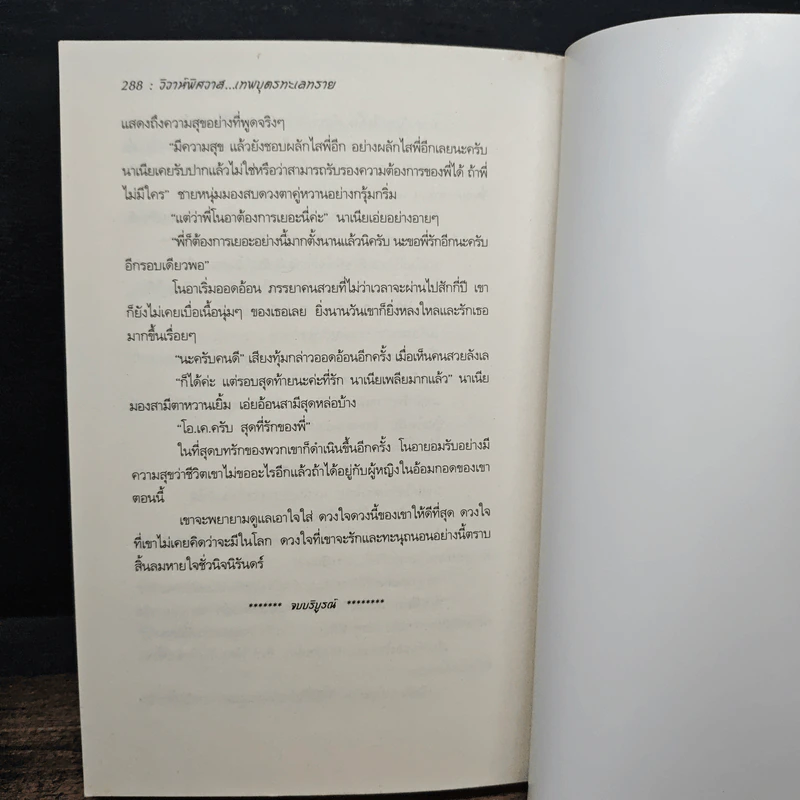 288 : วิวาห์พิศวาส...เทพบุตรทะเลทราย
แสดงถึงความสุขอย่างที่พูดจริงๆ
“มีความสุข แล้วยังชอบผลักไสพี่อีก อย่างผลักไสพี่อีกเลยนะครับ
นาเนียเคยรับปากแล้วไม่ใช่หรือว่าสามารถรับรองความต้องการของพี่ได้ ถ้าพี่
ไม่มีใคร” ชายหนุ่มมองสบดวงตาคู่หวานอย่างกรุ้มกริ่ม
“แต่ว่าพี่โนอาต้องการเยอะนี่ค่ะ” นาเนียเอ่ยอย่างอายๆ
“พี่ก็ต้องการเยอะอย่างนี้มากตั้งนานแล้วนิครับ นะขอพี่รักอีกนะครับ
อีกรอบเดียวพอ”
โนอาเริ่มออดอ้อน ภรรยาคนสวยที่ไม่ว่าเวลาจะผ่านไปสักกี่ปี เขา
ก็ยังไม่เคยเบื่อเนื้อนุ่มๆ ของเธอเลย ยิ่งนานวันเขาก็ยิ่งหลงใหลและรักเธอ
มากขึ้นเรื่อยๆ
“นะครับคนดี” เสียงทุ้มกล่าวออดอ้อนอีกครั้ง เมื่อเห็นคนสวยลังเล
“ก็ได้ค่ะ แต่รอบสุดท้ายนะค่ะที่รัก นาเนียเพลียมากแล้ว” นาเนีย
มองสามีตาหวานเยิ้ม เอ่ยอ้อนสามีสุดหล่อบ้าง
“โอ.เค.ครับ สุดที่รักของพี่”
ในที่สุดบทรักของพวกเขาก็ดำเนินขึ้นอีกครั้ง โนอายอมรับอย่างมี
ความสุขว่าชีวิตเขาไม่ขออะไรอีกแล้วถ้าได้อยู่กับผู้หญิงในอ้อมกอดของเขา
ตอนนี้
เขาจะพยายามดูแลเอาใจใส่ ดวงใจดวงนี้ของเขาให้ดีที่สุด ดวงใจ
ที่เขาไม่เคยคิดว่าจะมีในโลก ดวงใจที่เขาจะรักและทะนุถนอนอย่างนี้ตราบ
สิ้นลมหายใจชั่วนิจนิรันดร์
******* จบบริบูรณ์ ********